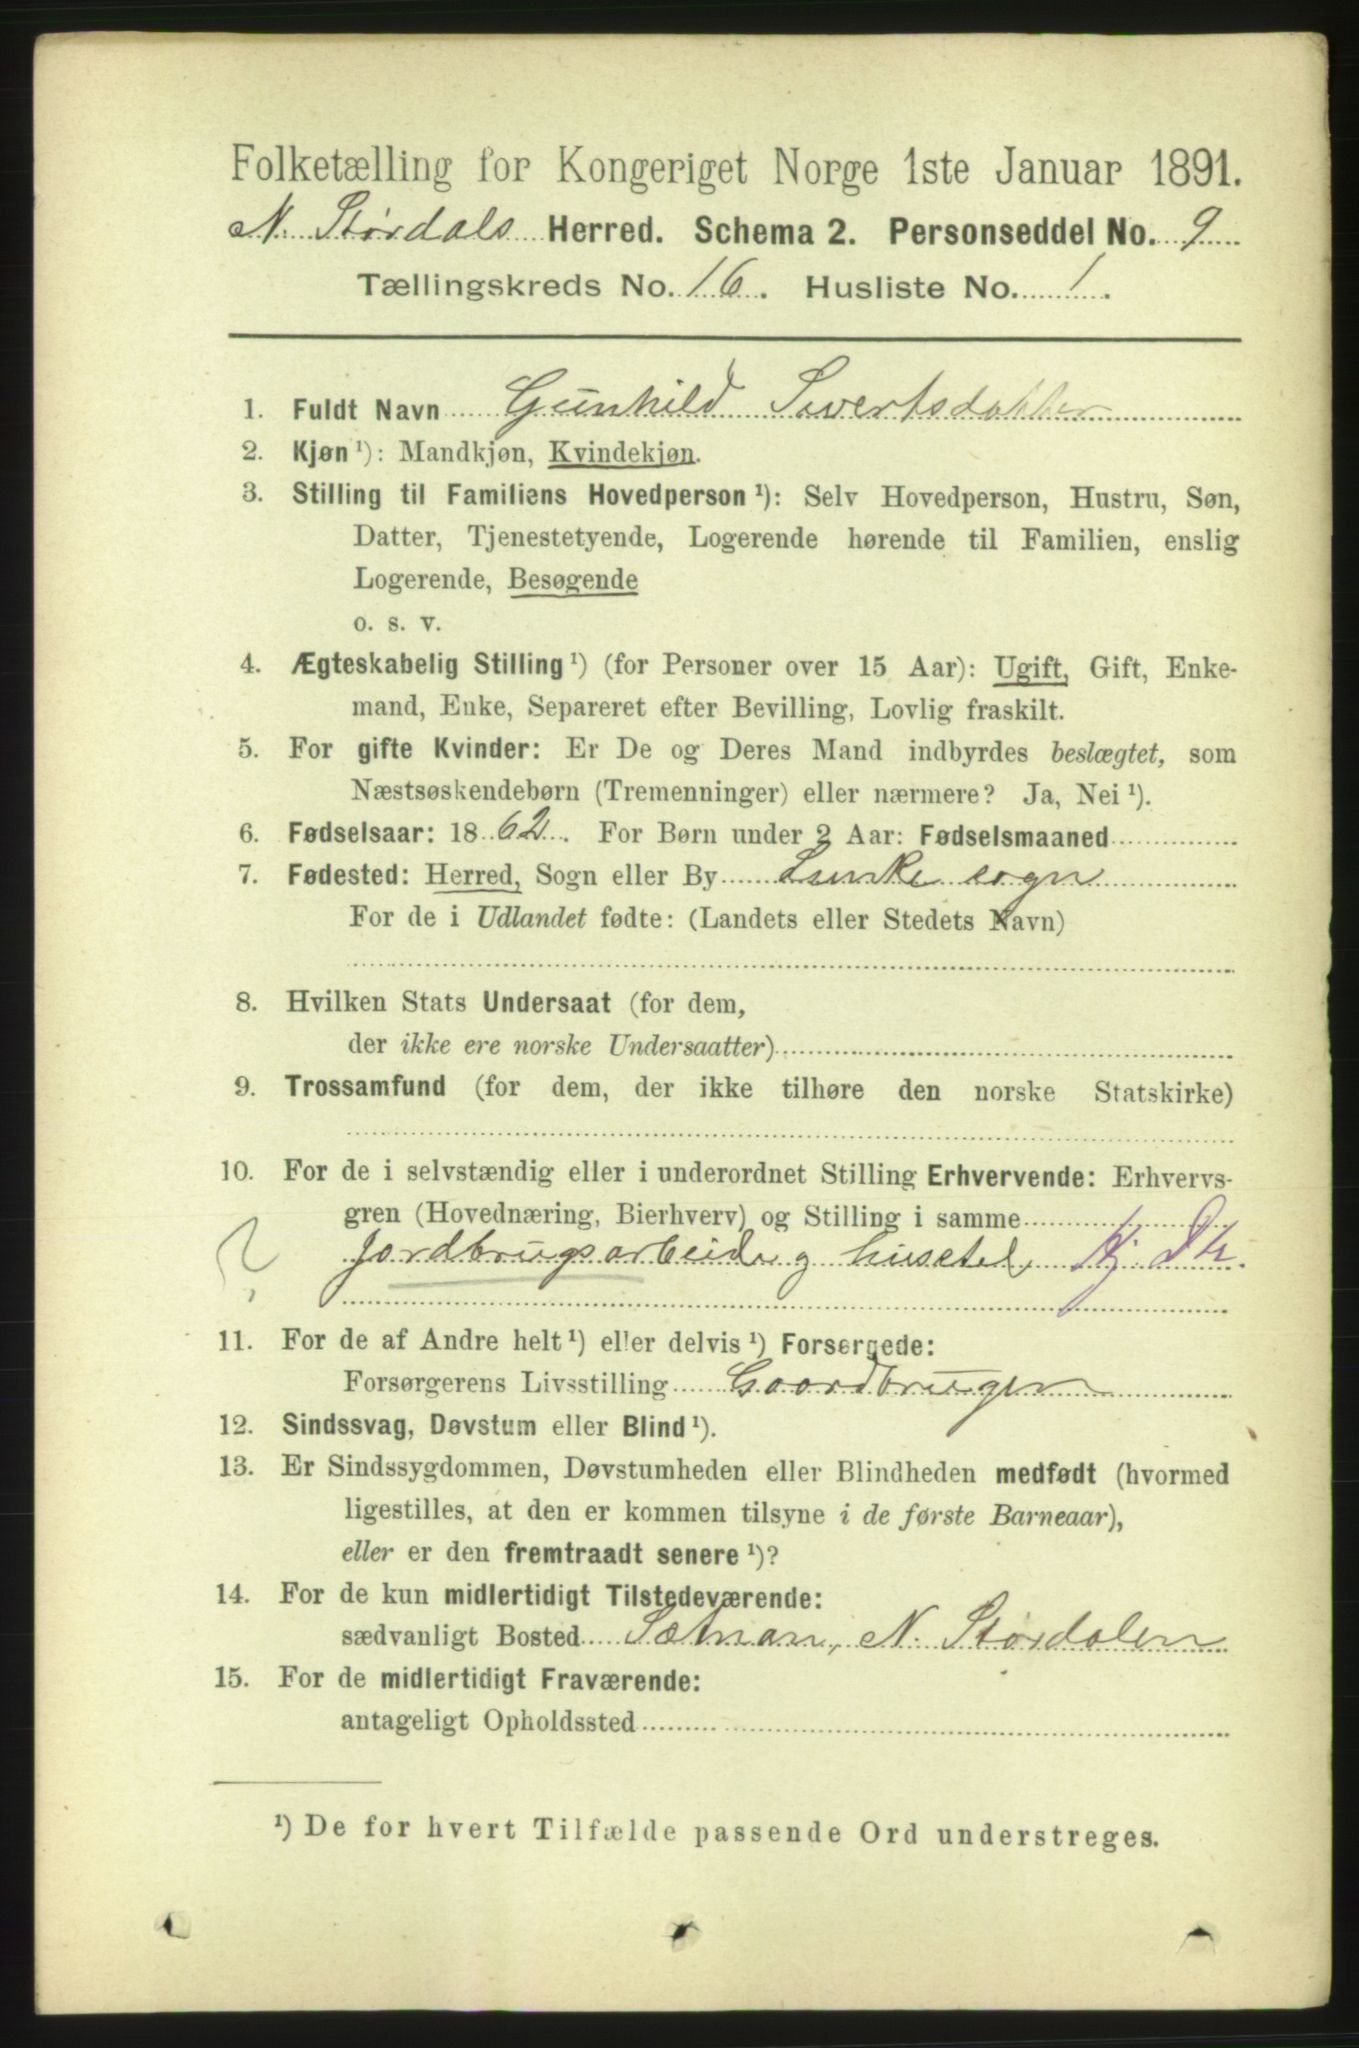 Folketælling for Kongeriget Norge 1ste Januar 1891.
N. Størdals Herred. Schema 2. Personseddel No. 9
Tællingskreds No. 16. Husliste No. 1.
1. Fuldt Navn Gunhild Sivertsdatter
2. Kjøn ¹): Mandkjøn, Kvindekjøn.
3. Stilling til Familiens Hovedperson ¹): Selv Hovedperson, Hustru, Søn,
Datter, Tjenestetyende, Logerende hørende til Familien, enslig
Logerende, Besøgende
o. s. v.
4. Ægteskabelig Stilling ¹) (for Personer over 15 Aar): Ugift, Gift, Enke-
mand, Enke, Separeret efter Bevilling, Lovlig fraskilt.
5. For gifte Kvinder: Er De og Deres Mand indbyrdes beslægtet, som
Næstsøskendebørn (Tremenninger) eller nærmere? Ja, Nei ¹).
6. Fødselsaar: 1862. For Børn under 2 Aar: Fødselsmaaned
7. Fødested: Herred, Sogn eller By Lunke sogn
For de i Udlandet fødte: (Landets eller Stedets Navn)
8. Hvilken Stats Undersaat (for dem,
der ikke ere norske Undersaatter)
9. Trossamfund (for dem, der ikke tilhøre den norske Statskirke)
10. For de i selvstændig eller i underordnet Stilling Erhvervende: Erhvervs-
gren (Hovednæring, Bierhverv) og Stilling i samme
? Jordbrugsarbeide og husstel
11. For de af Andre helt ¹) eller delvis ¹) Forsørgede:
Forsørgerens Livsstilling Gaardbruger
12. Sindssvag, Døvstum eller Blind ¹).
13. Er Sindssygdommen, Døvstumheden eller Blindheden medfødt (hvormed
ligestilles, at den er kommen tilsyne i de første Barneaar),
eller er den fremtraadt senere ¹)?
14. For de kun midlertidigt Tilstedeværende:
sædvanligt Bosted Sætnan, N. Størdalen
15. For de midlertidigt Fraværende:
antageligt Opholdssted
¹) De for hvert Tilfælde passende Ord understreges.